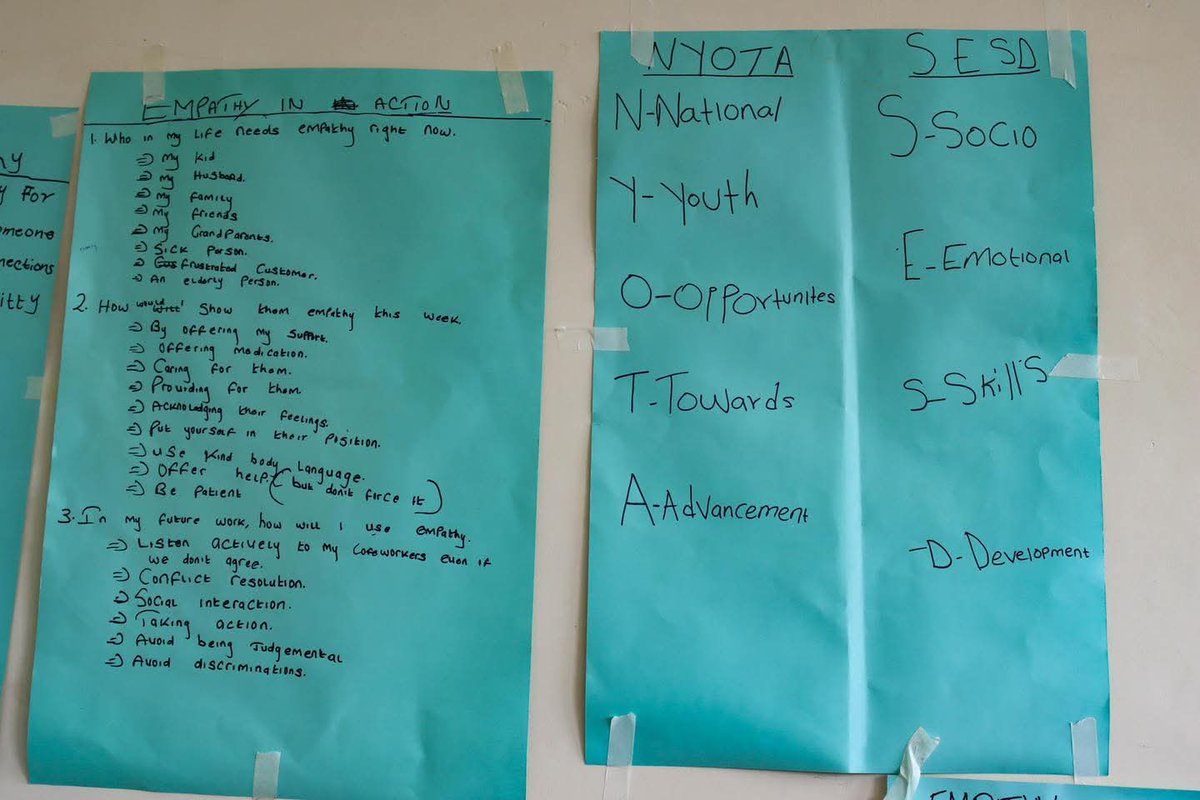 ny
y for
omeone
nections
itty
EMPATHY IN ACTION
1. Who in my life needs empathy right now.
⇒ My kid
⇒ My Husband.
⇒ My family
⇒ My friends
⇒ My GrandParents.
⇒ Sick Person.
⇒ frustrated Customer.
⇒ An elderly person.
2. How would show them empathy this week.
⇒ By offering my support.
⇒ Offering medication.
⇒ Caring for them.
⇒ Providing for them
⇒ Acknoledging their feelings.
⇒ Put yourself in their position.
⇒ Use kind body language.
⇒ Offer help (but don't force it)
⇒ Be patient
3. In my future work, how will I use empathy.
⇒ Listen actively to my coreworkers even if
we don't agree.
⇒ Conflict resolution.
⇒ Social interaction.
⇒ Taking action.
⇒ Avoid being judgemental
⇒ Avoid discriminations.
NYOTA
N-National
Y-Youth
O-Opportunites
T-Towards
A-Advancement
SESD
S-Socio
E-Emotional
S-Skill's
-D-Development